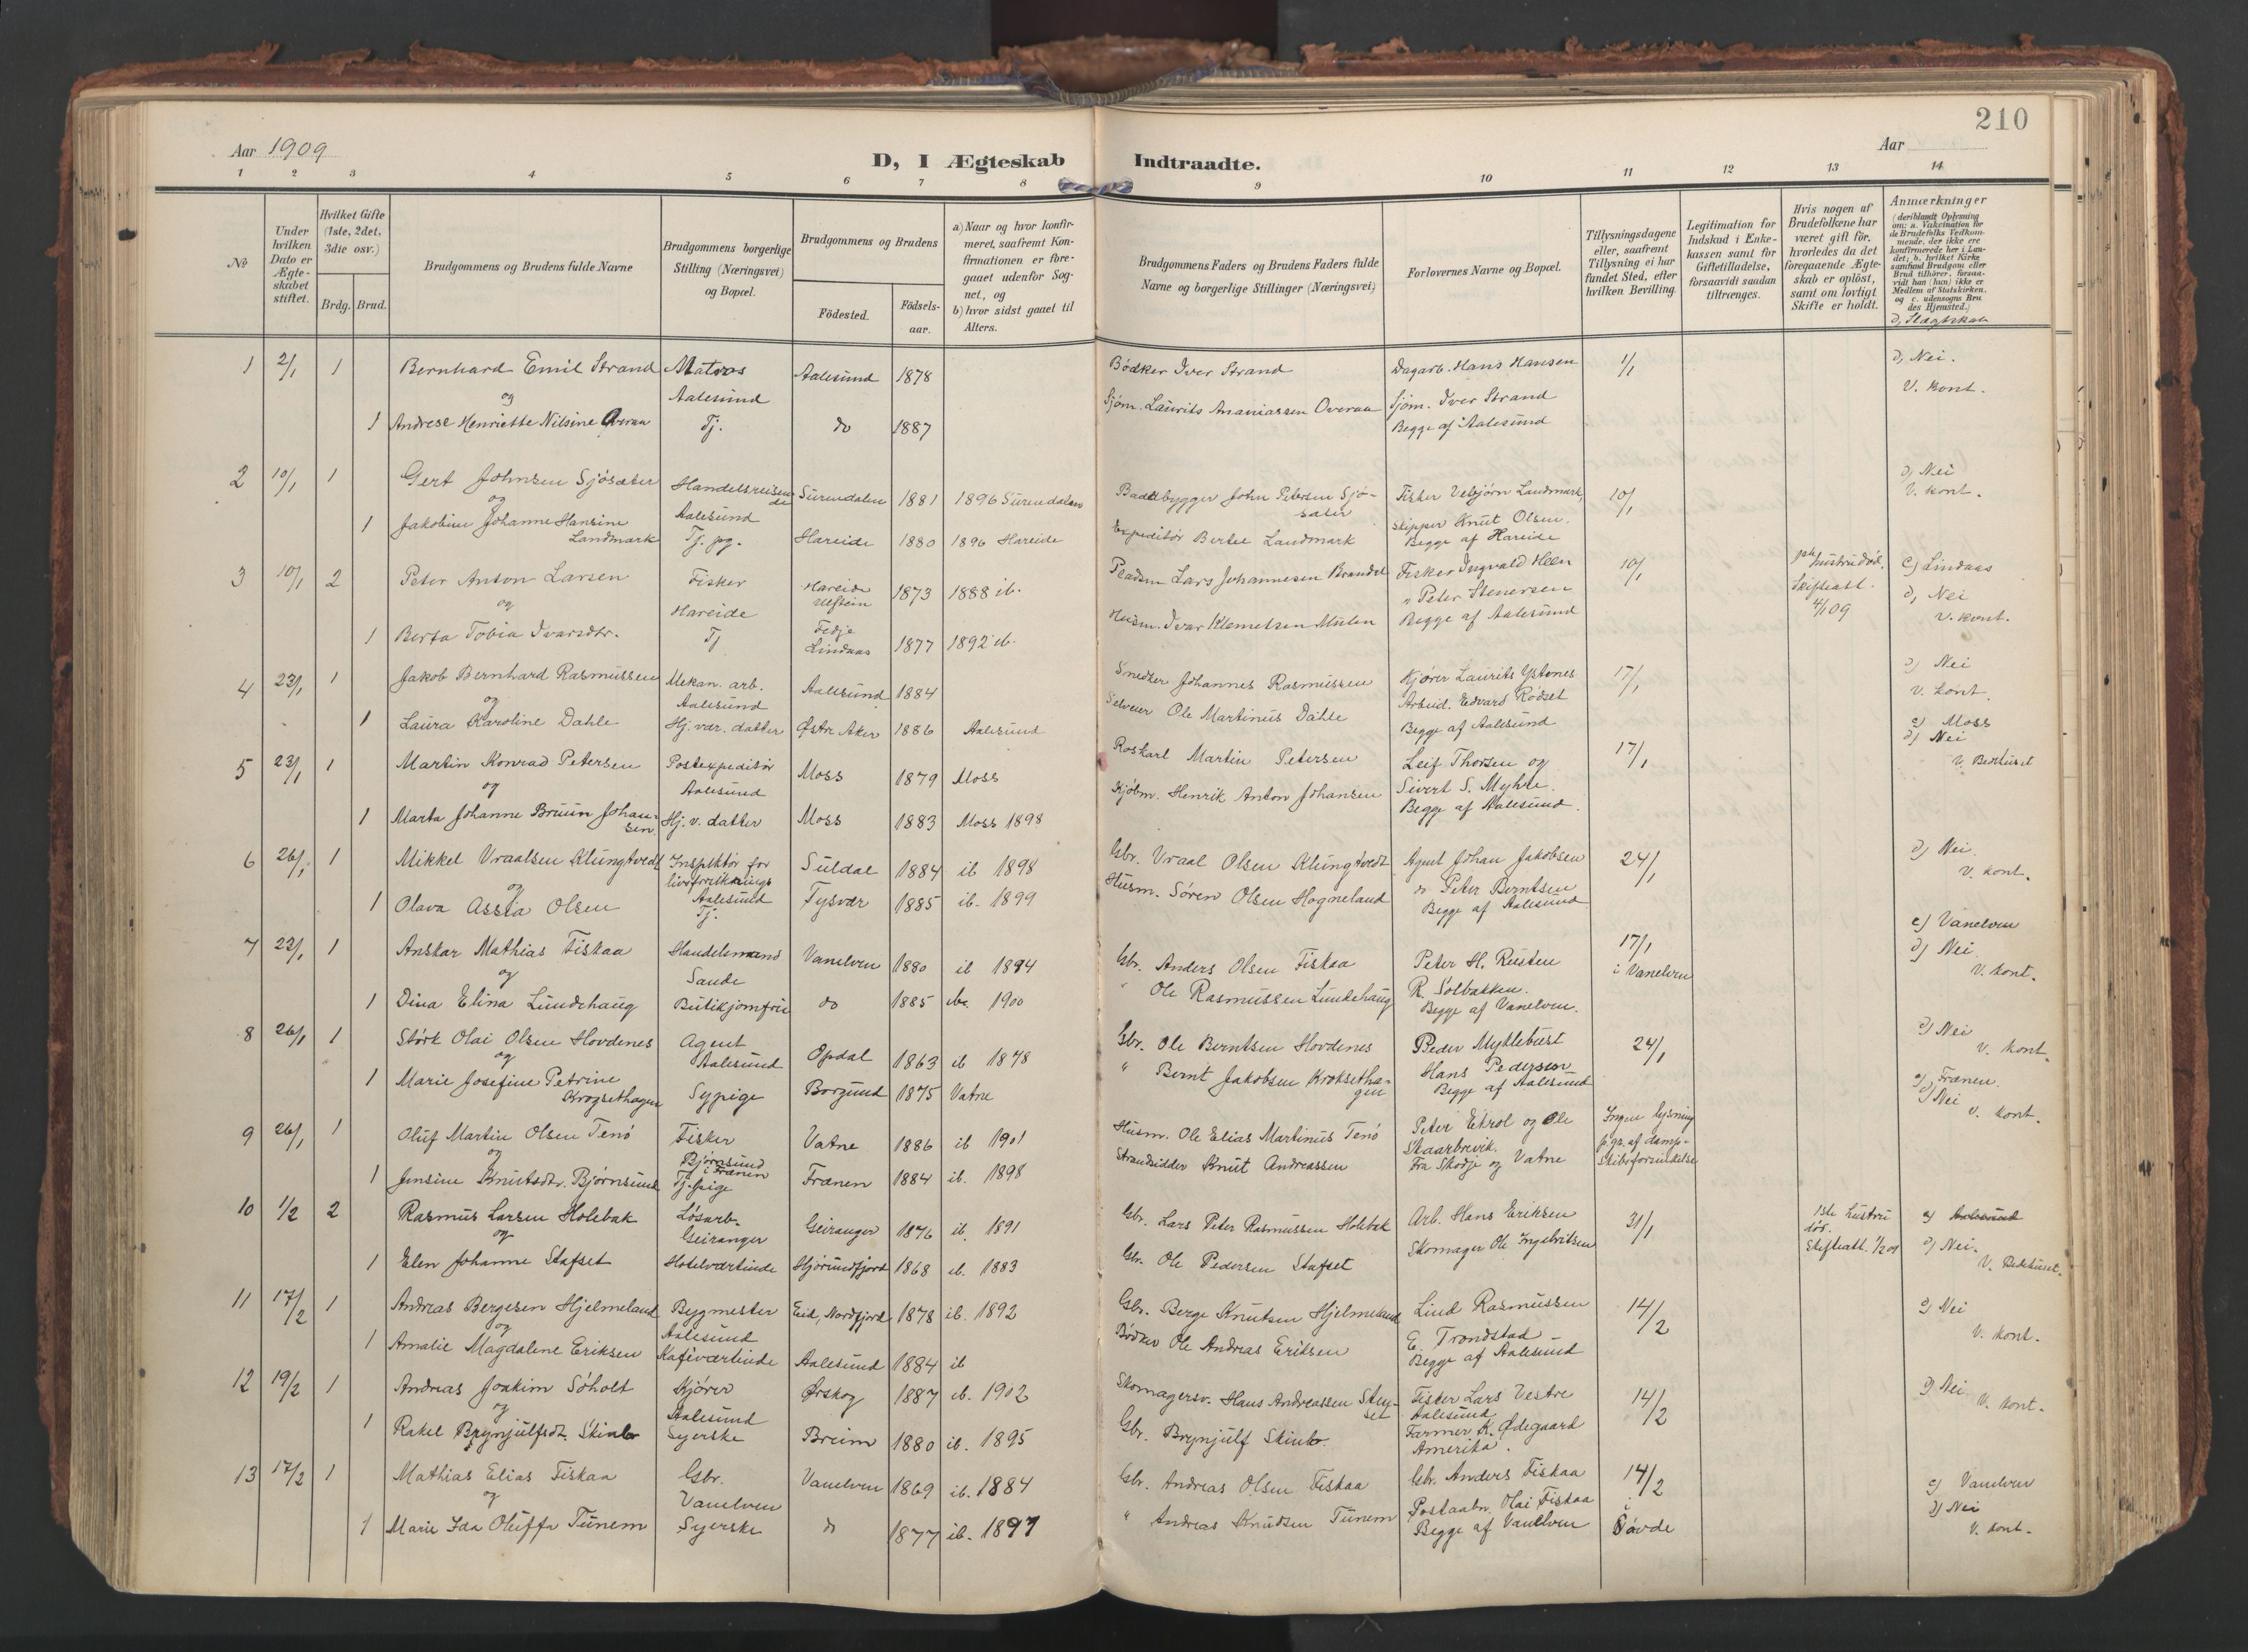 210
Aar 1909
Aar
D, I Ægteskab Indtraadte.
1 2 3 4 5 6 7 8 9 10 11 12 13 14
No
Under hvilken Dato er Ægte-skabet stiftet.
Hvilket Gifte (1ste, 2det, 3die osv.)
Brdg. Brud.
Brudgommens og Brudens fulde Navne
Brudgommens borgerlige Stilling (Næringsvei) og Bopæl.
Brudgommens og Brudens
Födested.
Födsels-aar.
a) Naar og hvor konfir-meret, saafremt Kon-firmationen er fore-gaaet udenfor Sog-net, og
b) hvor sidst gaaet til Alters.
Brudgommens Faders og Brudens Faders fulde Navne og borgerlige Stillinger (Næringsvei)
Forlovernes Navne og Bopæl.
Tillysningsdagene eller, saafremt Tillysning ei har fundet Sted, efter hvilken Bevilling.
Legitimation for Indskud i Enke-kassen samt for Giftetilladelse, forsaavidt saadan tiltrænges.
Hvis nogen af Brudefolkene har været gift för, hvorledes da det foregaaende Ægte-skab er oplöst, samt om lovligt Skifte er holdt.
Anmærkninger
(deriblandt Oplysning om: a. Vakcination for de Brudefolks Vedkom-mende, der ikke ere konfirmerede her i Lan-det; b. hvilket Kirke-samfund Brudgom eller Brud tilhörer, forsaa-vidt han (hun) ikke er Medlem af Statskirken, og c. udensogns Bru-des Hjemsted.)
d) Slægtskab
1 2/1 1 Bernhard Emil Strand Matros Aalesund 1878 Bødker Iver Strand Dagarb. Hans Hansen 1/1 d) Nei.
og Aalesund Sjøm. Laurits Ananiassen Overaa Sjøm. Iver Strand V. kont.
1 Andrese Henriette Nilsine Overaa Tj. do 1887 Begge af Aalesund
2 10/1 1 Gert Johnsen Sjøsæter Handelsreisende Surendalen 1881 1896 Surendalen Baadbygger John Petersen Sjø-sæter Fisker Vebjørn Landmark, 10/1 d) Nei
og Aalesund skipper Knut Olsen. V. kont.
1 Jakobine Johanne Hansine Landmark Tj. pg. Hareide 1880 1896 Hareide Expeditør Bertel Landmark Begge af Hareide
3 10/1 2 Peter Anton Larsen Fisker Hareide Ulfstein 1873 1888 ib. Pladsm Lars Johannesen Brandal Fisker Ingvald Heen 10/1 1ste hustru død. c) Lindaas
og Hareide " Peter Stenersen Skifteatt. 4/1 09 d) Nei
1 Berta Tobia Ivarsdtr. Tj Fedje Lindaas 1877 1892 ib. Husm. Ivar Klemetsen Mulen Begge af Aalesund V. kont.
4 23/1 1 Jakob Bernhard Rasmussen Mekan. arb. Aalesund 1884 Snedker Johannes Rasmussen Kjører Laurits Ystenes 17/1 d) Nei
og Aalesund Arbeid. Edvard Rødset V. kont.
1 Laura Karoline Dahle Hj. vær. datter Østre Aker 1886 Aalesund Selveier Ole Martinus Dahle Begge af Aalesund
5 23/1 1 Martin Konrad Petersen Postexpeditør Moss 1879 Moss Roskarl Martin Petersen Leif Thorsen og 17/1 c) Moss
og Aalesund Sivert S. Myhre. d) Nei
1 Marta Johanne Bruun Johansen. Hj. v. datter Moss 1883 Moss 1898 Kjøbm. Henrik Anton Johansen Begge af Aalesund. V. Bedehuset
6 26/1 1 Mikkel Vraalsen Klungtvedt Inspektør for livsforsikrings Suldal 1884 ib 1898 Gbr. Vraal Olsen Klungtvedt Agent Johan Jakobsen 24/1 d) Nei
og Aalesund do Peter Berntsen V. kont.
1 Olava Assia Olsen Tj. Tysvær 1885 ib. 1899 Husm. Søren Olsen Hogneland Begge af Aalesund
7 23/1 1 Anskar Mathias Fiskaa Handelsmand Vanelven 1880 ib 1894 Gbr. Anders Olsen Fiskaa Peter H. Rusten 17/1 i Vanelven c) Vanelven
og Sande R. Solbakken. d) Nei
1 Dina Elina Lundehaug Butikjomfru do 1885 ib. 1900 " Ole Rasmussen Lundehaug Begge af Vanelven. V. kont.
8 26/1 1 Størk Olai Olsen Hovdenes Agent Opdal 1863 ib 1878 Gbr. Ole Berntsen Hovdenes Peder Myklebust 24/1 d) Nei
og Aalesund Hans Pedersen V. kont.
1 Marie Josefine Petrine Krogsethagen Sypige Borgund 1875 Vatne " Bernt Jakobsen Kroksetha-gen Begge af Aalesund
9 26/1 1 Oluf Martin Olsen Tenø Fisker Vatne 1886 ib 1901 Husm. Ole Elias Martinus Tenø Peter Ekrol og Ole Ingen lysning c) Frænen.
og Bjørnsund i Frænen Skaarbrevik. p. gr. af damp- d) Nei
1 Jensine Knutsdtr. Bjørnsund Tj. pige Frænen 1884 ib. 1898 Strandsidder Knut Andreassen Fra Skodje og Vatne skibsforsinkelse V. kont.
10 1/2 2 Rasmus Larsen Holebak Løsarb. Geiranger 1876 ib. 1891 Gbr. Lars Peter Rasmussen Holebak Arb. Hans Eriksen 31/1 1ste hustru død. c) Aalesund
og Geiranger Skomager Ole Ingebritsen Skifteatt. 1/2 09 d) Nei.
1 Elen Johanne Stafset Hotelværtinde Hjørundfjord 1868 ib. 1883 Gbr. Ole Pedersen Stafset V. Bedehuset.
11 17/2 1 Andreas Bergesen Hjelmeland Bygmester Eid, Nordfjord 1878 ib. 1892 Gbr. Berge Knutsen Hjelmeland Lind Rasmussen 14/2 d) Nei
og Aalesund E. Trondstad V. kont.
1 Amalie Magdalene Eriksen Kafeværtinde Aalesund 1884 ib Bødker Ole Andreas Eriksen Begge af Aalesund
12 19/2 1 Andreas Joakim Søholt Kjører Ørskog 1887 ib. 1902 Skomagersv. Hans Andreassen Fisker Lars Vestre 14/2 d) Nei
og Aalesund Aalesund V. kont.
1 Rakel Brynjulfsdt. Skinlo Syerske Breim 1880 ib. 1895 Gbr. Brynjulf Skinlo. Farmer K. Ødegaard Amerika.
13 17/2 1 Mathias Elias Fiskaa Gbr. Vanelven 1869 ib. 1884 Gbr. Andreas Olsen Fiskaa Gbr. Anders Fiskaa 14/2 c) Vanelven
og Vanelven Postaabn. Olai Fiskaa i d) Nei
1 Marie Ida Oluffa Tunem Syerske do 1877 ib. 1897 " Andreas Knudsen Tunem Begge af Vanelven Søvde V. kont.